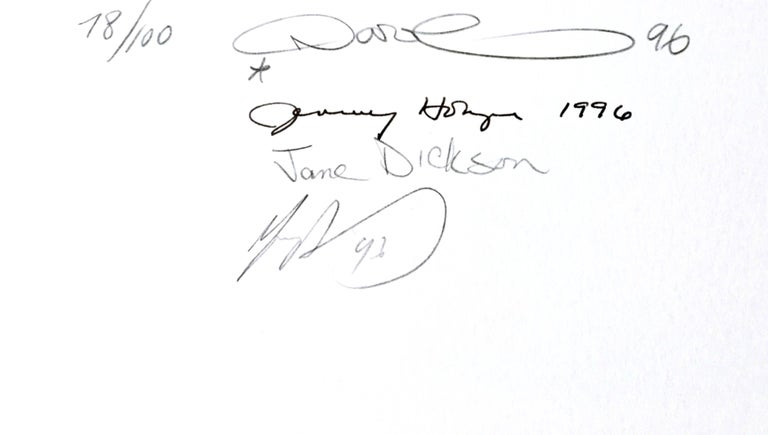 18/100 Daze 96
*
Jenny Holzer 1996
Jane Dickson
96